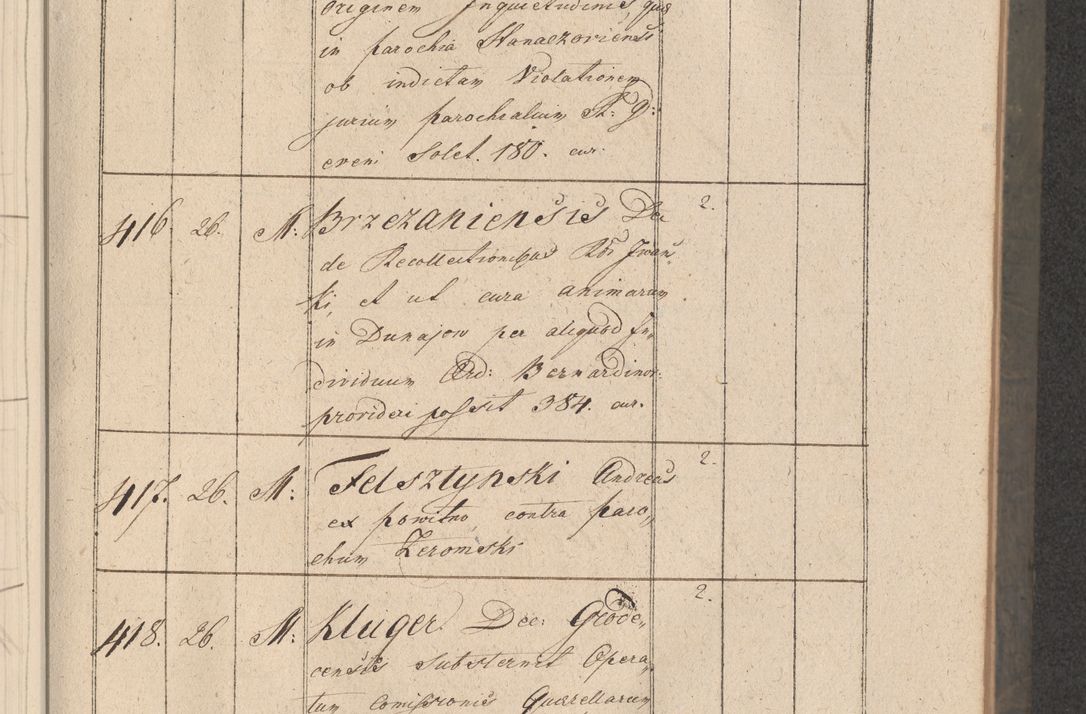 originem Inquietudinis, quæ
in parochia Stanaezoriensi
ob indictam Violationem
jurium parochialium St: G:
eveni solet. 180. cur.
416. 26. M. Brzezaniensis Dec 2.
de Recollectionibus Rdi Iwań„
ki, et ut cura animarum
in Dunajow per aliquod In„
dividuum Ord: Bernardinor:
providere possit 384. cur.
417. 26. M: Felsztynski Andreas 2.
ex powitno contra paro„
chum Zeromski
418. 26. M: Kluger Dec: Grode„ 2.
censis substernit Opera„
tum comissionis Quærellarum